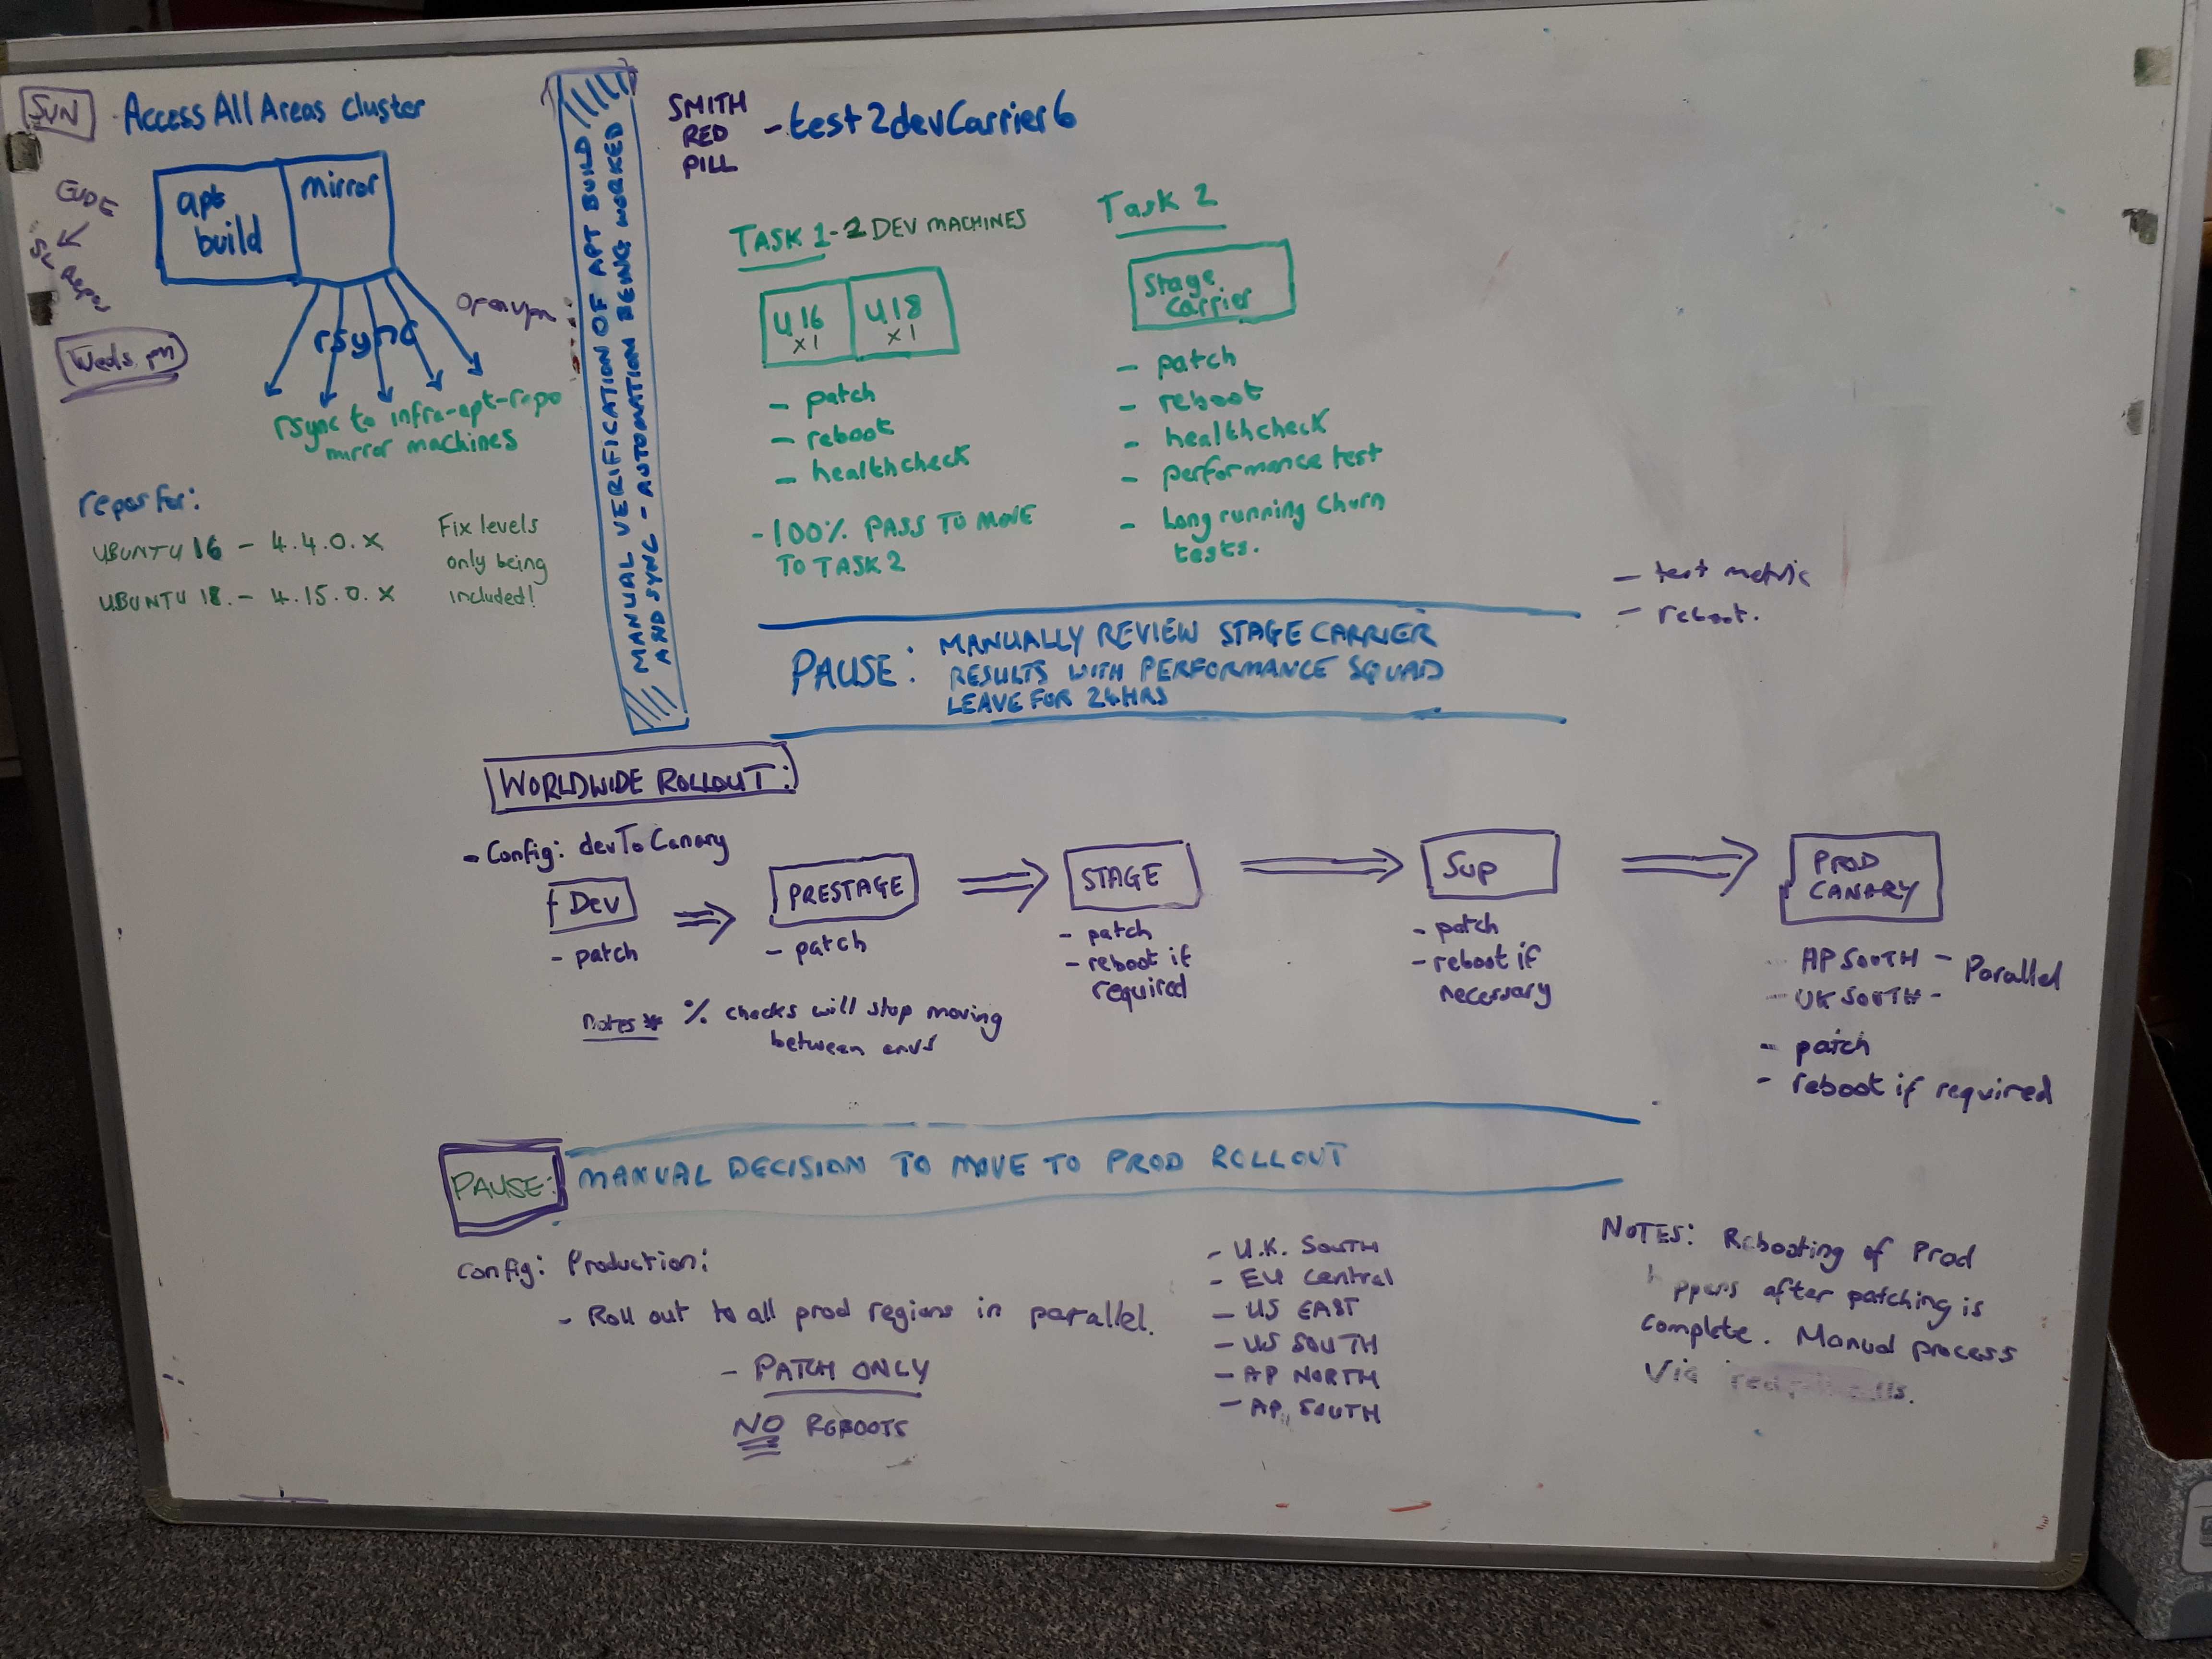 SUN
Access All Areas cluster
apt build
mirror
rsync
openvpn
Weds pm
rsync to infra-apt-repo
mirror machines
repos for:
UBUNTU 16 - 4.4.0.x
UBUNTU 18. - 4.15.0.x
Fix levels
only being
included!
MANUAL VERIFICATION OF APT BUILD
AND SYNC - AUTOMATION BEING WORKED
SMITH
RED
PILL
- test2devCarrier6
TASK 1 - 2 DEV MACHINES
U16
x1
U18
x1
- patch
- reboot
- healthcheck
- 100% PASS TO MOVE
TO TASK 2
Task 2
Stage
Carrier
- patch
- reboot
- healthcheck
- performance test
- Long running churn
tests.
- test metric
- reboot.
PAUSE: MANUALLY REVIEW STAGE CARRIER
RESULTS WITH PERFORMANCE SQUAD
LEAVE FOR 24HRS
WORLDWIDE ROLLOUT:
- Config: devToCanary
Dev
- patch
PRESTAGE
- patch
STAGE
- patch
- reboot if
required
Sup
- patch
- reboot if
necessary
PROD
CANARY
- AP SOUTH - Parallel
- UK SOUTH -
- patch
- reboot if required
Notes * % checks will stop moving
between envs
PAUSE: MANUAL DECISION TO MOVE TO PROD ROLLOUT
Config: Production:
- Roll out to all prod regions in parallel.
- PATCH ONLY
NO REBOOTS
- U.K. SOUTH
- EU Central
- US EAST
- US SOUTH
- AP NORTH
- AP SOUTH
NOTES: Rebooting of Prod
happens after patching is
complete. Manual process
Via